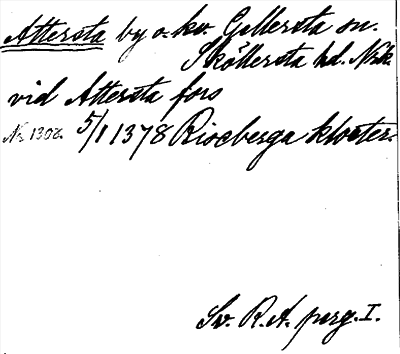 Attersta by o. kv. Gellersta sn.
Sköllersta hd. Nrk.
vid Attersta fors
Nr 1302. 5/1 1378 Riseberga kloster.
Sv. R.A. perg. I.